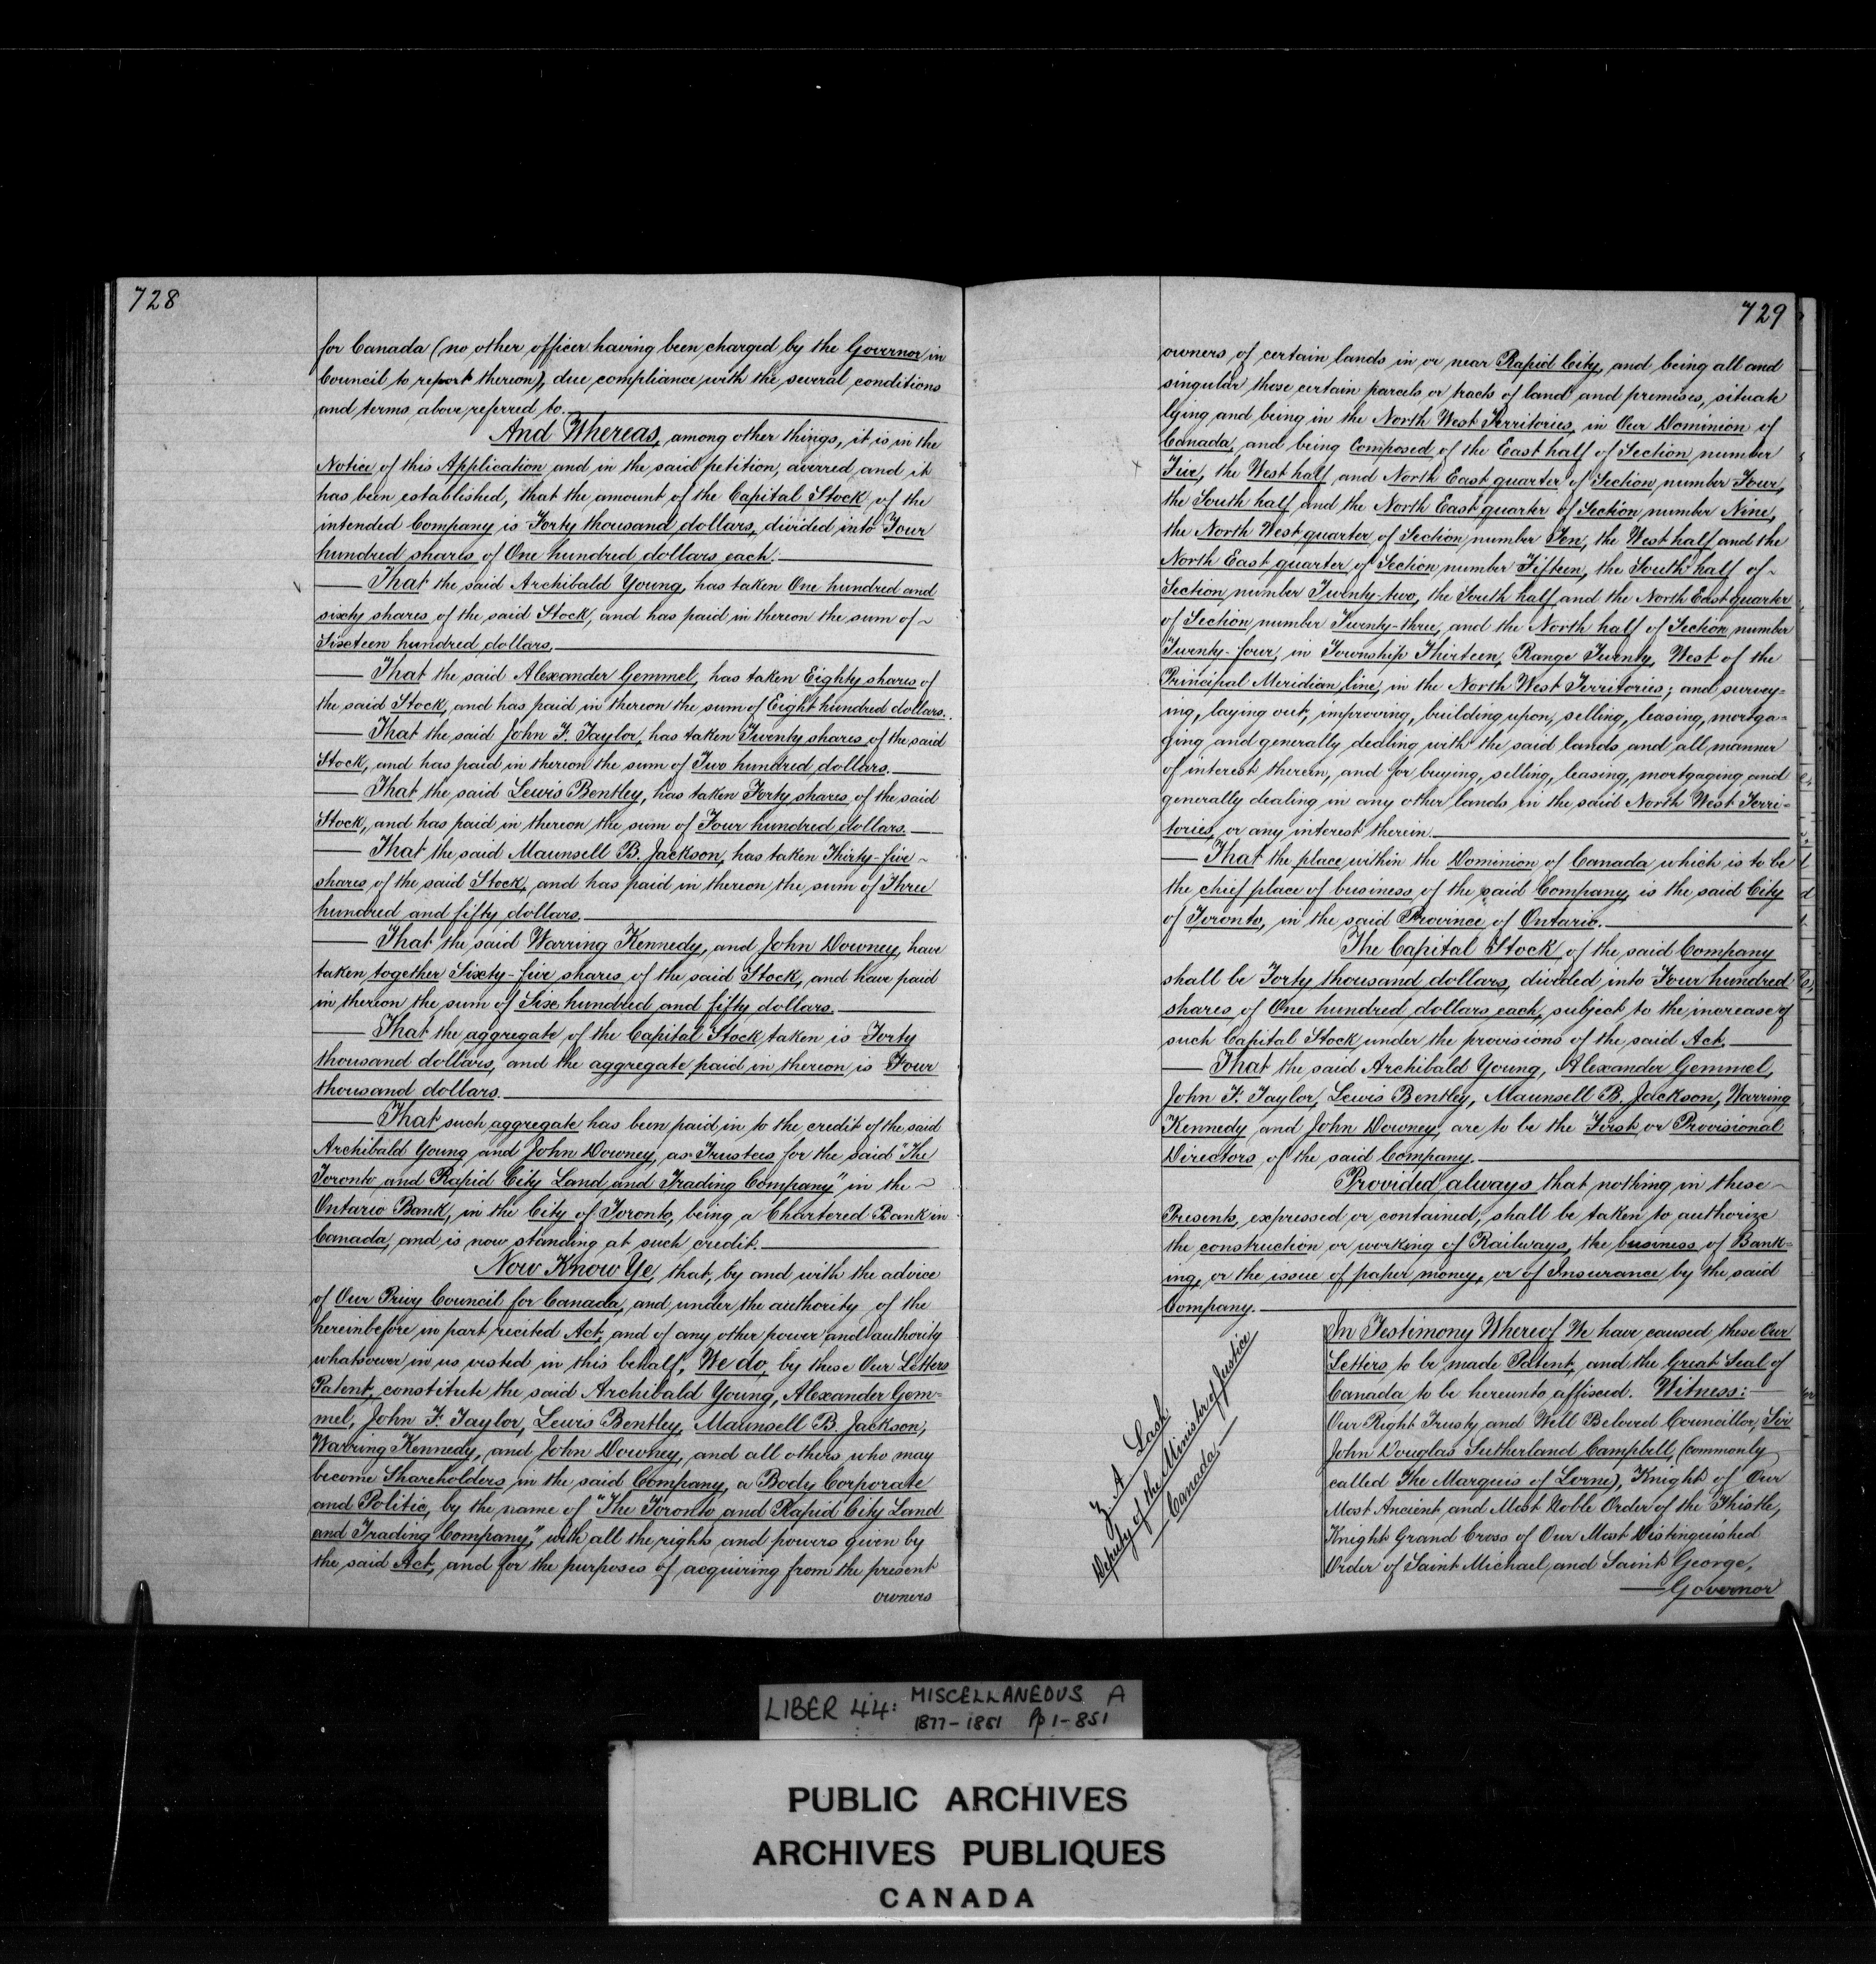 728
for Canada (no other officer having been charged by the Governor in
Council to report thereon), due compliance with the several conditions
and terms above referred to.
And Whereas, among other things, it is in the
Notice of this Application and in the said petition, averred, and it
has been established, that the amount of the Capital Stock of the
intended Company is Forty thousand dollars, divided into Four
hundred shares of One hundred dollars each.
That the said Archibald Young, has taken One hundred and
sixty shares of the said Stock, and has paid in thereon the sum of ~
Sixteen hundred dollars.
That the said Alexander Gemmel, has taken Eighty shares of
the said Stock, and has paid in thereon the sum of Eight hundred dollars.
That the said John F. Taylor, has taken Twenty shares of the said
Stock, and has paid in thereon the sum of Two hundred dollars.
That the said Lewis Bentley, has taken Forty shares of the said
Stock, and has paid in thereon the sum of Four hundred dollars.
That the said Maunsell B. Jackson, has taken Thirty-five ~
shares of the said Stock, and has paid in thereon the sum of Three
hundred and fifty dollars.
That the said Warring Kennedy, and John Downey, have
taken together Sixty-five shares of the said Stock, and have paid
in thereon the sum of Six hundred and fifty dollars.
That the aggregate of the Capital Stock taken is Forty
thousand dollars, and the aggregate paid in thereon is Four
thousand dollars.
That such aggregate has been paid in to the credit of the said
Archibald Young and John Downey, as Trustees for the said "The
Toronto and Rapid City Land and Trading Company" in the ~
Ontario Bank, in the City of Toronto, being a Chartered Bank in
Canada, and is now standing at such credit.
Now Know Ye, that, by and with the advice
of Our Privy Council for Canada, and under the authority of the
hereinbefore in part recited Act, and of any other power and authority
whatsoever in us vested in this behalf, We do, by these Our Letters
Patent, constitute the said Archibald Young, Alexander Gem-
mel, John F. Taylor, Lewis Bentley, Maunsell B. Jackson,
Warring Kennedy, and John Downey, and all others who may
become Shareholders in the said Company, a Body Corporate
and Politic, by the name of "The Toronto and Rapid City Land
and Trading Company," with all the rights and powers given by
the said Act, and for the purposes of acquiring from the present
owners
729
owners of certain lands in or near Rapid City, and being all and
singular those certain parcels or tracts of land and premises, situate
lying and being in the North West Territories, in Our Dominion of
Canada, and being Composed of the East half of Section number
Five, the West half and North East quarter of Section number Four,
the South half and the North East quarter of Section number Nine,
the North West quarter of Section number Ten, the West half and the
North East quarter of Section number Fifteen, the South half of ~
Section number Twenty-two, the South half and the North East quarter
of Section number Twenty-three, and the North half of Section number
Twenty-four, in Township Thirteen, Range Twenty, West of the
Principal Meridian line, in the North West Territories; and survey-
ing, laying out, improving, building upon, selling, leasing, mortga-
ging and generally dealing with the said lands and all manner
of interest therein, and for buying, selling, leasing, mortgaging and
generally dealing in any other lands in the said North West Terri-
tories, or any interest therein.
That the place within the Dominion of Canada which is to be
the chief place of business of the said Company, is the said City
of Toronto, in the said Province of Ontario.
The Capital Stock of the said Company
shall be Forty thousand dollars, divided into Four hundred
shares of One hundred dollars each, subject to the increase of
such Capital Stock under the provisions of the said Act.
That the said Archibald Young, Alexander Gemmel,
John F. Taylor, Lewis Bentley, Maunsell B. Jackson, Warring
Kennedy and John Downey, are to be the First or Provisional
Directors of the said Company.
Provided always that nothing in these ~
Presents, expressed or contained, shall be taken to authorize
the construction or working of Railways, the business of Bank-
ing, or the issue of paper money, or of Insurance by the said
Company.
In Testimony Whereof We have caused these Our
Letters, to be made Patent, and the Great Seal of
Canada to be hereunto affixed. Witness:
Our Right Trusty and Well Beloved Councillor, Sir
John Douglas Sutherland Campbell, (commonly
called The Marquis of Lorne), Knight of Our
Most Ancient and Most Noble Order of the Thistle,
Knight Grand Cross of Our Most Distinguished
Order of Saint Michael and Saint George,
Governor
Z. A. Lash
Deputy of the Minister of Justice
Canada.
LIBER 44: MISCELLANEOUS A
1877-1881 Pp 1-851
PUBLIC ARCHIVES
ARCHIVES PUBLIQUES
CANADA